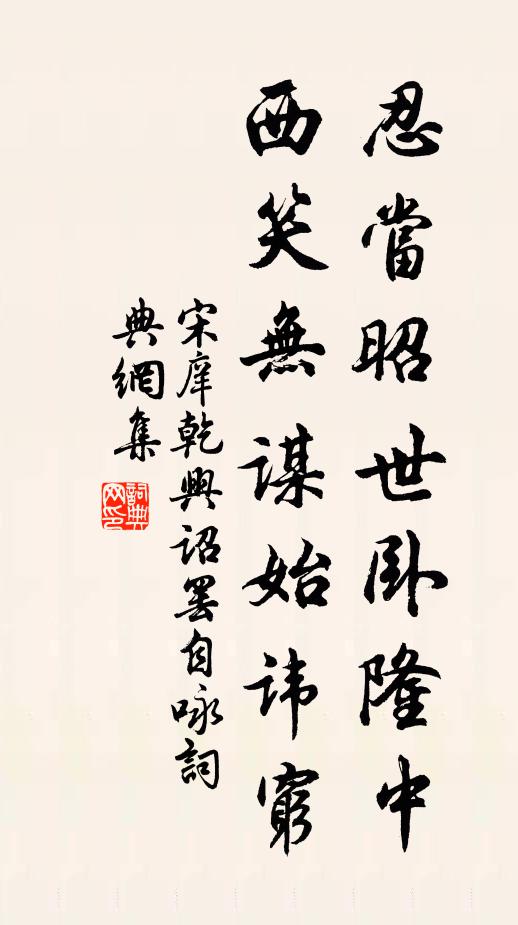 忍當昭世卧隆中
西笑無謀始諱窮
宋庠乾興詔罷自咏詞
典網集
詞典網印